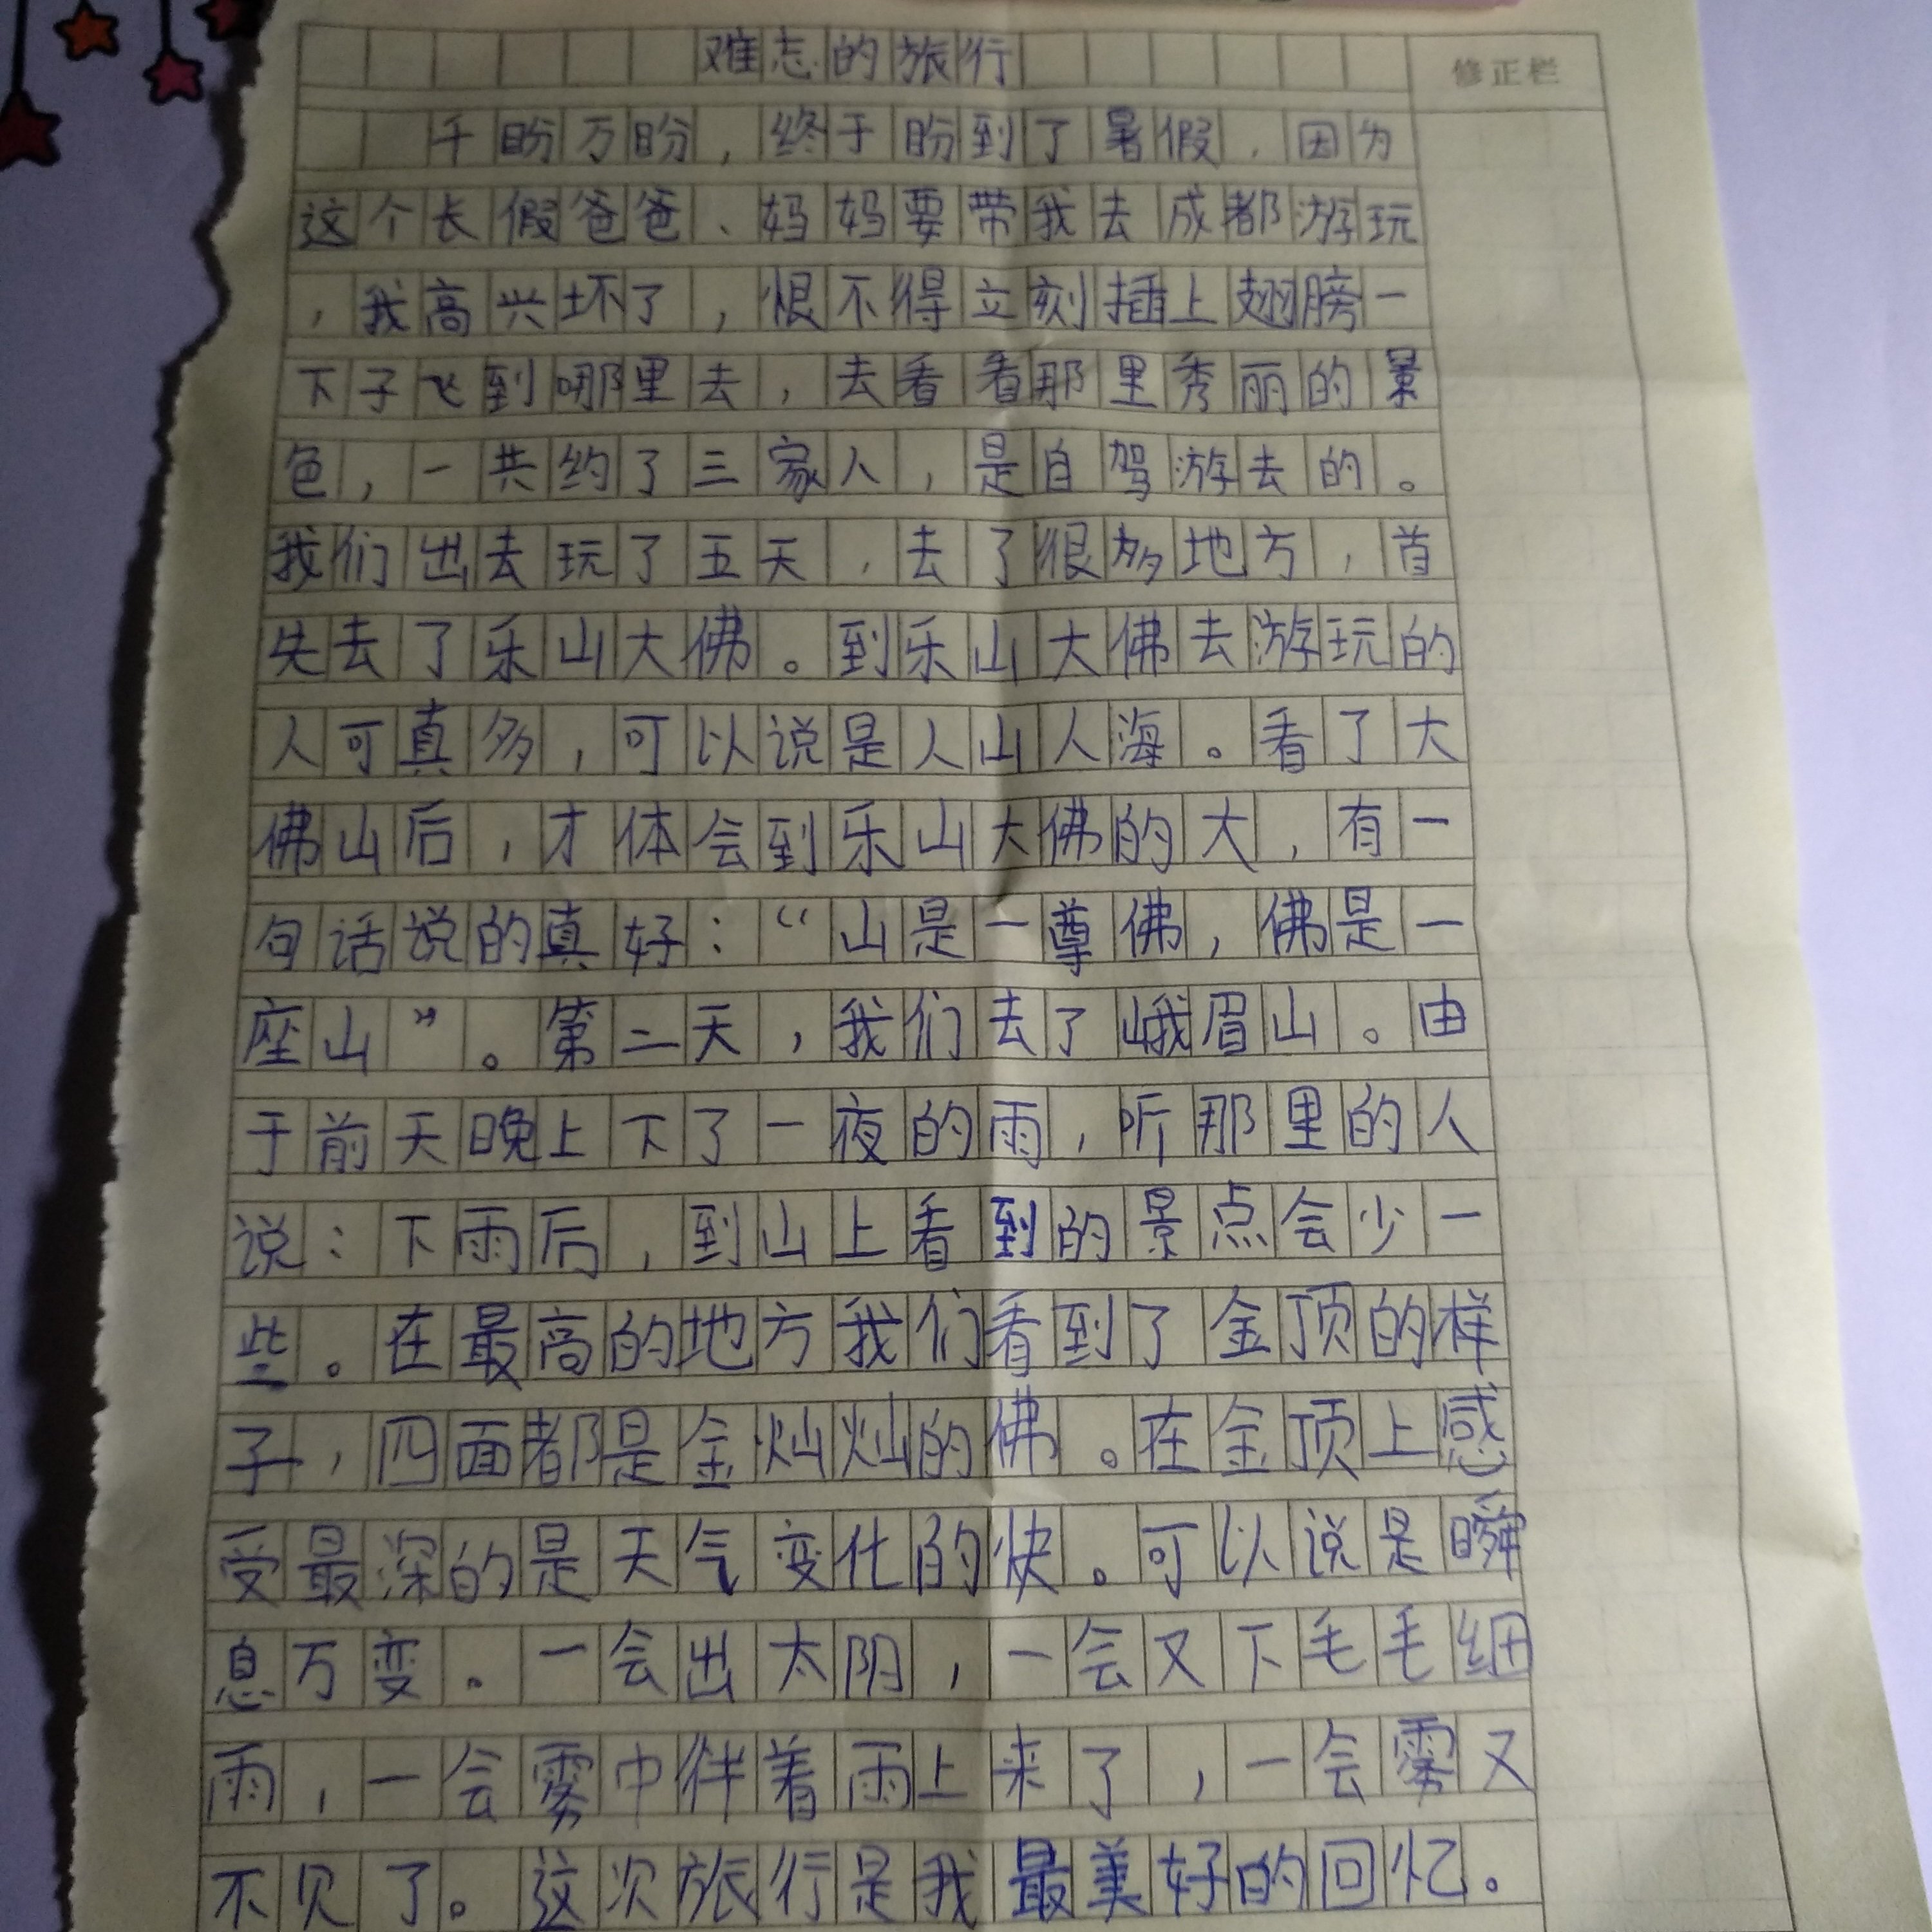 难忘的旅行
修正栏
千盼万盼，终于盼到了暑假，因为
这个长假爸爸、妈妈要带我去成都游玩
，我高兴坏了，恨不得立刻插上翅膀一
下子飞到哪里去，去看看那里秀丽的景
色，一共约了三家人，是自驾游去的。
我们出去玩了五天，去了很多地方，首
先去了乐山大佛。到乐山大佛去游玩的
人可真多，可以说是人山人海。看了大
佛山后，才体会到乐山大佛的大，有一
句话说的真好：“山是一尊佛，佛是一
座山”。第二天，我们去了峨眉山。由
于前天晚上下了一夜的雨，听那里的人
说：下雨后，到山上看到的景点会少一
些。在最高的地方我们看到了金顶的样
子，四面都是金灿灿的佛。在金顶上感
受最深的是天气变化的快。可以说是瞬
息万变。一会出太阳，一会又下毛毛细
雨，一会雾中伴着雨上来了，一会雾又
不见了。这次旅行是我最美好的回忆。